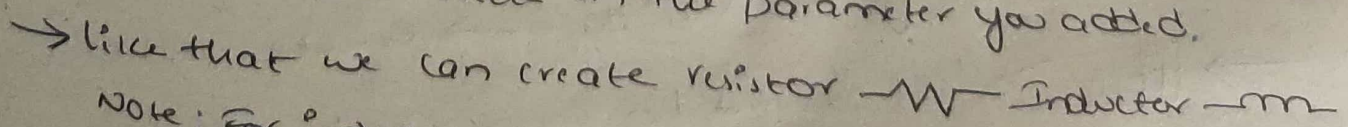 parameter you added.
→ like that we can create resistor Inductor
Note: